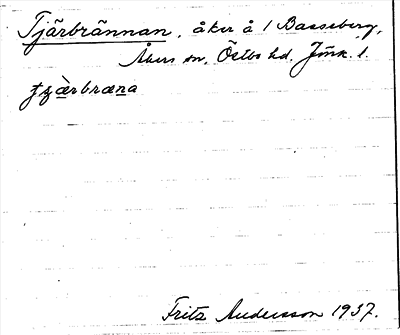 Tjärbrännan, åker å 1 Basseberg,
Åkers sn, Östbo hd, Jönk. l.
tȷæ̀rbræna
Fritz Andersson 1937.